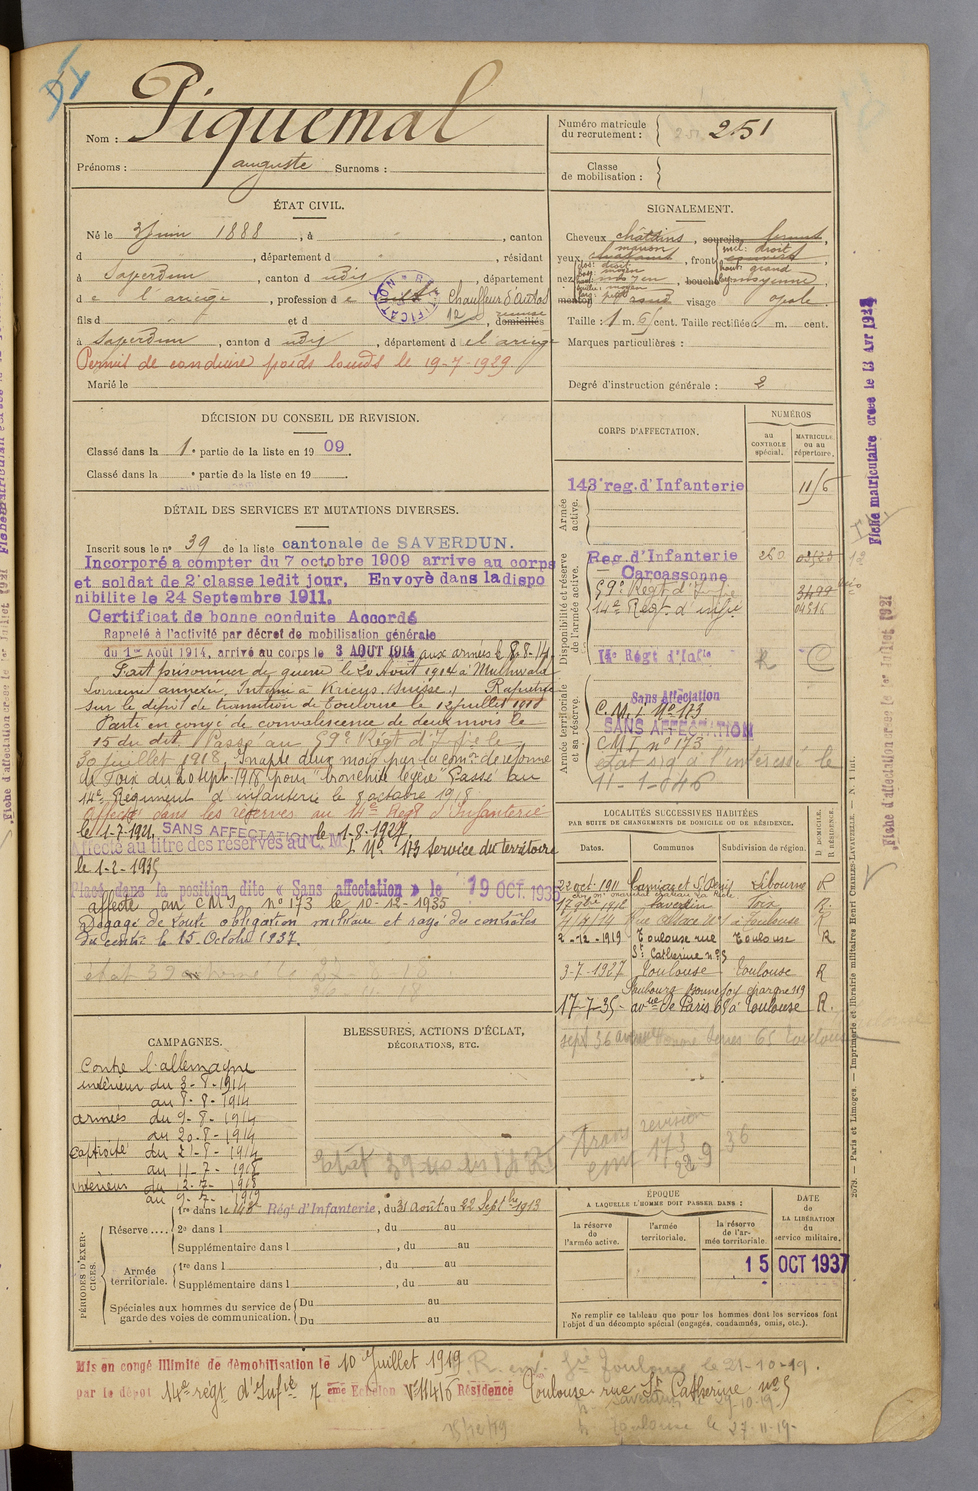 Piquemal
Nom :
Prénoms : auguste Surnoms :
Numéro matricule
du recrutement : 251
Classe
de mobilisation :
ÉTAT CIVIL.
Né le 3 Juin 1888, à , canton
d , département d , résidant
à Saverdun, canton d udis, département
de l'ariège, profession de Chauffeur d'Autos
fils d et d , domiciliés
à Saverdun, canton d udis, département d el ariège
Permis de conduire poids lourds le 19-7-1929
Marié le
SIGNALEMENT.
Cheveux châtains, sourcils
yeux marron, front
nez moyen, bouche moyenne,
menton visage ovale
Taille : 1 m. 61 cent. Taille rectifiée : m. cent.
Marques particulières :
Degré d'instruction générale : 2
DÉCISION DU CONSEIL DE REVISION.
Classé dans la 1e partie de la liste en 1909.
Classé dans la e partie de la liste en 19
DÉTAIL DES SERVICES ET MUTATIONS DIVERSES.
Inscrit sous le n° 39 de la liste cantonale de SAVERDUN.
Incorporé a compter du 7 octobre 1909 arrive au corps
et soldat de 2e classe ledit jour, Envoyè dans la dispo
nibilite le 24 Septembre 1911.
Certificat de bonne conduite Accordé
Rappelé à l'activité par décret de mobilisation générale
du 1er Août 1914, arrivé au corps le 3 AOUT 1914 aux armées le 8-8-14.
Fait prisonnier de guerre le 20 Août 1914 à
Lorraine annexée. Interné à Kriens (Suisse) Rapatrié
sur le dépôt de transition de Toulouse le 12 juillet 1918
Parti en congé de convalescence de deux mois le
15 du dit. Passé au 59e Régt d'Infie le
30 juillet 1918. Inapte deux mois par la Comon de réforme
de Foix du 20 sept. 1918 pour "bronchite légère" Passé au
14e Régiment d'infanterie le 8 octobre 1918
Affecté dans les réserves au 14e Regt d'Infanterie
le 1-7-1921. SANS AFFECTATION le 1-8-1927.
Affecté au titre des réserves au C. M. I. No 173 Service du territoire
le 1-2-1935
Placé dans la position dite « Sans affectation » le 19 OCT. 1935
affecté au CMI n° 173 le 10-12-1935
Dégagé de toute obligation militaire et rayé des contrôles
du centre le 15 Octobre 1937.
CORPS D'AFFECTATION.
NUMÉROS
au
CONTROLE
spécial.
MATRICULE
ou au
répertoire.
Armée
active.
143e reg. d'Infanterie
Disponibilité et réserve
de l'armée active.
Reg. d'Infanterie 260
Carcassonne
59e Régt d'Infie
14e Régt d'infie
14e Régt d'Infie R
Armée territoriale
et sa réserve.
Sans Affectation
C.M.I. No 173
SANS AFFECTATION
CMI n° 173
LOCALITÉS SUCCESSIVES HABITÉES
PAR SUITE DE CHANGEMENTS DE DOMICILE OU DE RÉSIDENCE.
Dates. Communes Subdivision de région. D DOMICILE. R RÉSIDENCE.
22 oct. 1911 Camiac et St Denis Libourne R
Saverdun Foix R.
à Toulouse R
2-12-1919 Toulouse rue Toulouse R
St Catherine n° 5
3-7-1927 Toulouse Toulouse R
Faubourg Bonnefoy 119
17-7-35 avue de Paris 65 à Toulouse R.
CAMPAGNES.
Contre l'allemagne
intérieur du 3-8-1914
au 8-8-1914
armées du 9-8-1914
au 20-8-1914
captivité du 21-8-1914
au 11-7-1918
intérieur du 12-7-1918
au 9-7-1919
BLESSURES, ACTIONS D'ÉCLAT,
DÉCORATIONS, ETC.
PÉRIODES D'EXERCICES.
Réserve ....
1re dans le 143e Régt d'Infanterie, du 31 août au 22 Septbre 1913
2e dans l , du au
Supplémentaire dans l , du au
Armée
territoriale.
1re dans l , du au
Supplémentaire dans l , du au
Spéciales aux hommes du service de
garde des voies de communication.
Du au
Du au
ÉPOQUE
A LAQUELLE L'HOMME DOIT PASSER DANS :
la réserve
de
l'armée active.
l'armée
territoriale.
la réserve
de l'ar-
mée territoriale.
DATE
de
LA LIBÉRATION
du
service militaire.
15 OCT 1937
Ne remplir ce tableau que pour les hommes dont les services font
l'objet d'un décompte spécial (engagés, condamnés, omis, etc.).
Mis en congé illimité de démobilisation le 10 Juillet 1919
par le dépôt 14e régt d'Infie 7ème Echelon No 11416 Résidence Toulouse rue St Catherine n° 5
Toulouse le 21-10-19.
Saverdun
Toulouse le 27-11-19-
Fiche matriculaire créée le
Fiche d'affectation créée le 1er Juillet 1921
2679. — Paris et Limoges. — Imprimerie et librairie militaires Henri CHARLES-LAVAUZELLE. — N. 1 int.